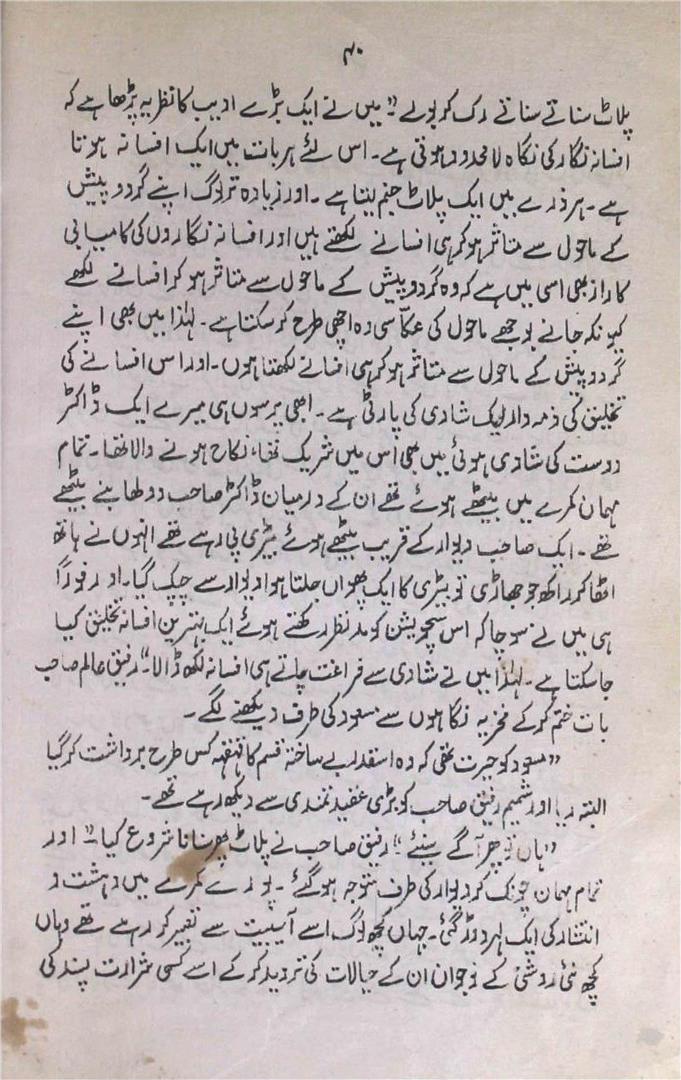 ۴۰
پلاٹ سناتے سناتے رک کر بولے۔" میں نے ایک بڑے ادیب کا نظریہ پڑھا ہے کہ
افسانہ نگار کی نگاہ لامحدود ہوتی ہے۔ اس لئے ہر بات میں ایک افسانہ ہوتا
ہے۔ ہر ذرے میں ایک پلاٹ جنم لیتا ہے۔ اور زیادہ تر لوگ اپنے گرد و پیش
کے ماحول سے متاثر ہو کر ہی افسانے لکھتے ہیں اور افسانہ نگاروں کی کامیابی
کا راز بھی اسی میں ہے کہ وہ گرد و پیش کے ماحول سے متاثر ہو کر افسانے لکھے
کیونکہ جانے بوجھے ماحول کی عکاسی وہ اچھی طرح کر سکتا ہے۔ لہٰذا میں بھی اپنے
گرد و پیش کے ماحول سے متاثر ہو کر ہی افسانے لکھتا ہوں۔ اور اس افسانے کی
تخلیق کی ذمہ دار ایک شادی کی پارٹی ہے۔ ابھی پرسوں ہی میرے ایک ڈاکٹر
دوست کی شادی ہوئی میں بھی اس میں شریک تھا، نکاح ہونے والا تھا۔ تمام
مہمان کمرے میں بیٹھے ہوئے تھے ان کے درمیان ڈاکٹر صاحب دولھا بنے بیٹھے
تھے۔ ایک صاحب دیوار کے قریب بیٹھے ہوئے بیڑی پی رہے تھے انہوں نے ہاتھ
اٹھا کر راکھ جو جھاڑی تو بیڑی کا ایک پھواں جلتا ہوا دیوار سے چپک گیا۔ اور فوراً
ہی میں نے سوچا کہ اس سچویشن کو مدنظر رکھتے ہوئے ایک بہترین افسانہ تخلیق کیا
جا سکتا ہے۔ لہٰذا میں نے شادی سے فراغت پاتے ہی افسانہ لکھ ڈالا۔" رفیق عالم صاحب
بات ختم کر کے فخریہ نگاہوں سے مسعود کی طرف دیکھنے لگے۔
"مسعود کو حیرت تھی کہ وہ اسقدر بے ساختہ قسم کا قہقہہ کس طرح برداشت کر گیا
البتہ ریا اور شمیم رفیق صاحب کو بڑی عقیدتمندی سے دیکھ رہے تھے۔
"ہاں تو پھر آگے سنئے"۔ رفیق صاحب نے پلاٹ پھر سنانا شروع کیا۔" اور
تمام مہمان چونک کر دیوار کی طرف متوجہ ہو گئے۔ پورے کمرے میں دہشت و
انتشار کی ایک لہر دوڑ گئی۔ جہاں کچھ لوگ اسے آسیبیت سے تعبیر کر رہے تھے وہاں
کچھ نئی روشنی کے نوجوان ان کے خیالات کی تردید کر کے اسے کسی شرارت پسند کی